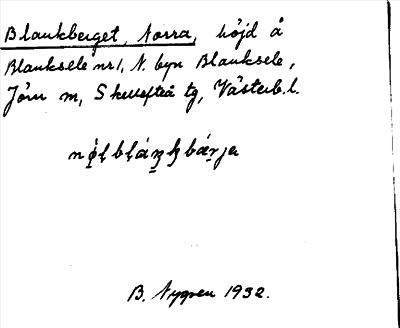 Blankberget, Norra, höjd å
Blanksele nr 1, N. byn Blanksele,
Jörn m, Skellefteå tg, Västerb. l.
B. Nygren 1932.